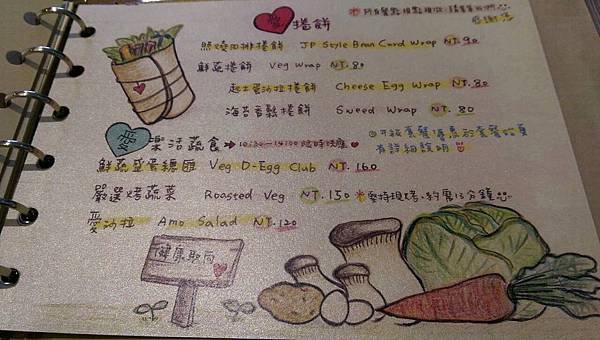 愛 捲餅
照燒肉排捲餅 JP Style Bean Curd Wrap NT.90
鮮蔬捲餅 Veg Wrap NT.80
起士蛋沙拉捲餅 Cheese Egg Wrap NT.80
海苔香鬆捲餅 Sweed Wrap NT.80
愛 樂活蔬食 → 10:30~14:00 限時供應
鮮蔬堡蛋總匯 Veg D-Egg Club NT.160
嚴選烤蔬菜 Roasted Veg NT.150 *堅持現烤、約需15分鐘
愛沙拉 Amo Salad NT.120
健康取向